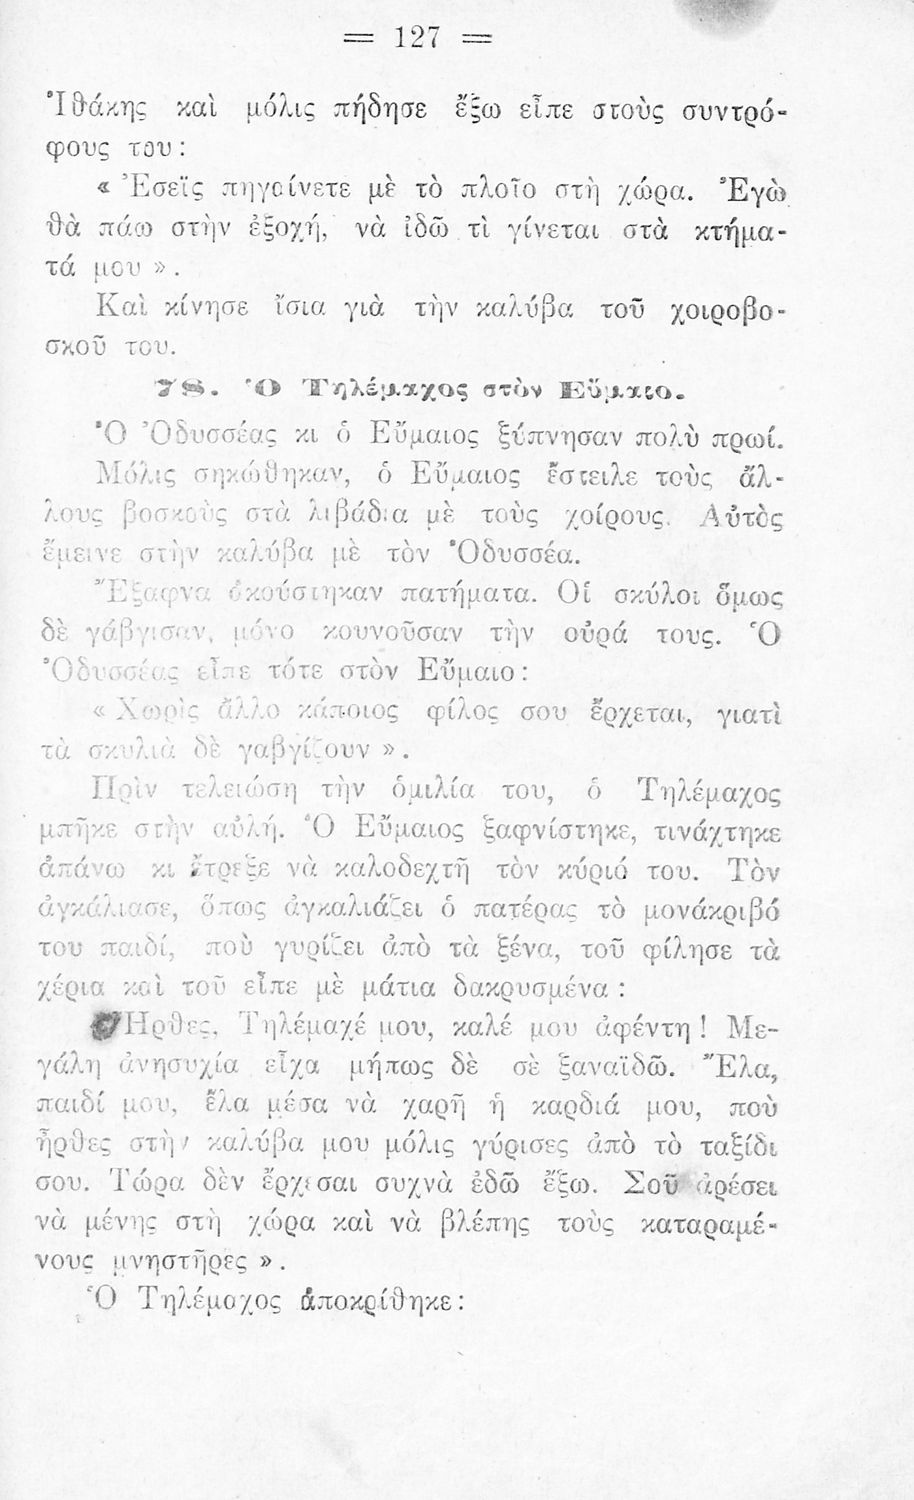 = 127 =
Ἰθάκης καὶ μόλις πήδησε ἔξω εἶπε στοὺς συντρό-
φους του :
« Ἐσεῖς πηγαίνετε μὲ τὸ πλοῖο στὴ χώρα. Ἐγὼ
θὰ πάω στὴν ἐξοχή, νὰ ἰδῶ τὶ γίνεται στὰ κτήμα-
τά μου ».
Καὶ κίνησε ἴσια γιὰ τὴν καλύβα τοῦ χοιροβο-
σκοῦ του.
78. Ὁ Τηλέμαχος στὸν Εὔμαιο.
Ὁ Ὀδυσσέας κι ὁ Εὔμαιος ξύπνησαν πολὺ πρωί.
Μόλις σηκώθηκαν, ὁ Εὔμαιος ἔστειλε τοὺς ἄλ-
λους βοσκοὺς στὰ λιβάδια μὲ τοὺς χοίρους. Αὐτὸς
ἔμεινε στὴν καλύβα μὲ τὸν Ὀδυσσέα.
Ἔξαφνα ἀκούστηκαν πατήματα. Οἱ σκύλοι ὅμως
δὲ γάβγισαν, μόνο κουνοῦσαν τὴν οὐρά τους. Ὁ
Ὀδυσσέας εἶπε τότε στὸν Εὔμαιο :
« Χωρὶς ἄλλο κάποιος φίλος σου ἔρχεται, γιατὶ
τὰ σκυλιὰ δὲ γαβγίζουν ».
Πρὶν τελειώση τὴν ὁμιλία του, ὁ Τηλέμαχος
μπῆκε στὴν αὐλή. Ὁ Εὔμαιος ξαφνίστηκε, τινάχτηκε
ἀπάνω κι ἔτρεξε νὰ καλοδεχτῆ τὸν κύριό του. Τὸν
ἀγκάλιασε, ὅπως ἀγκαλιάζει ὁ πατέρας τὸ μονάκριβό
του παιδί, ποὺ γυρίζει ἀπὸ τὰ ξένα, τοῦ φίλησε τὰ
χέρια καὶ τοῦ εἶπε μὲ μάτια δακρυσμένα :
Ἦρθες, Τηλέμαχέ μου, καλέ μου ἀφέντη ! Με-
γάλη ἀνησυχία εἶχα μήπως δὲ σὲ ξαναϊδῶ. Ἔλα,
παιδί μου, ἔλα μέσα νὰ χαρῆ ἡ καρδιά μου, ποὺ
ἦρθες στὴν καλύβα μου μόλις γύρισες ἀπὸ τὸ ταξίδι
σου. Τώρα δὲν ἔρχεσαι συχνὰ ἐδῶ ἔξω. Σοῦ ἀρέσει
νὰ μένης στὴ χώρα καὶ νὰ βλέπης τοὺς καταραμέ-
νους μνηστῆρες ».
Ὁ Τηλέμαχος ἀποκρίθηκε :